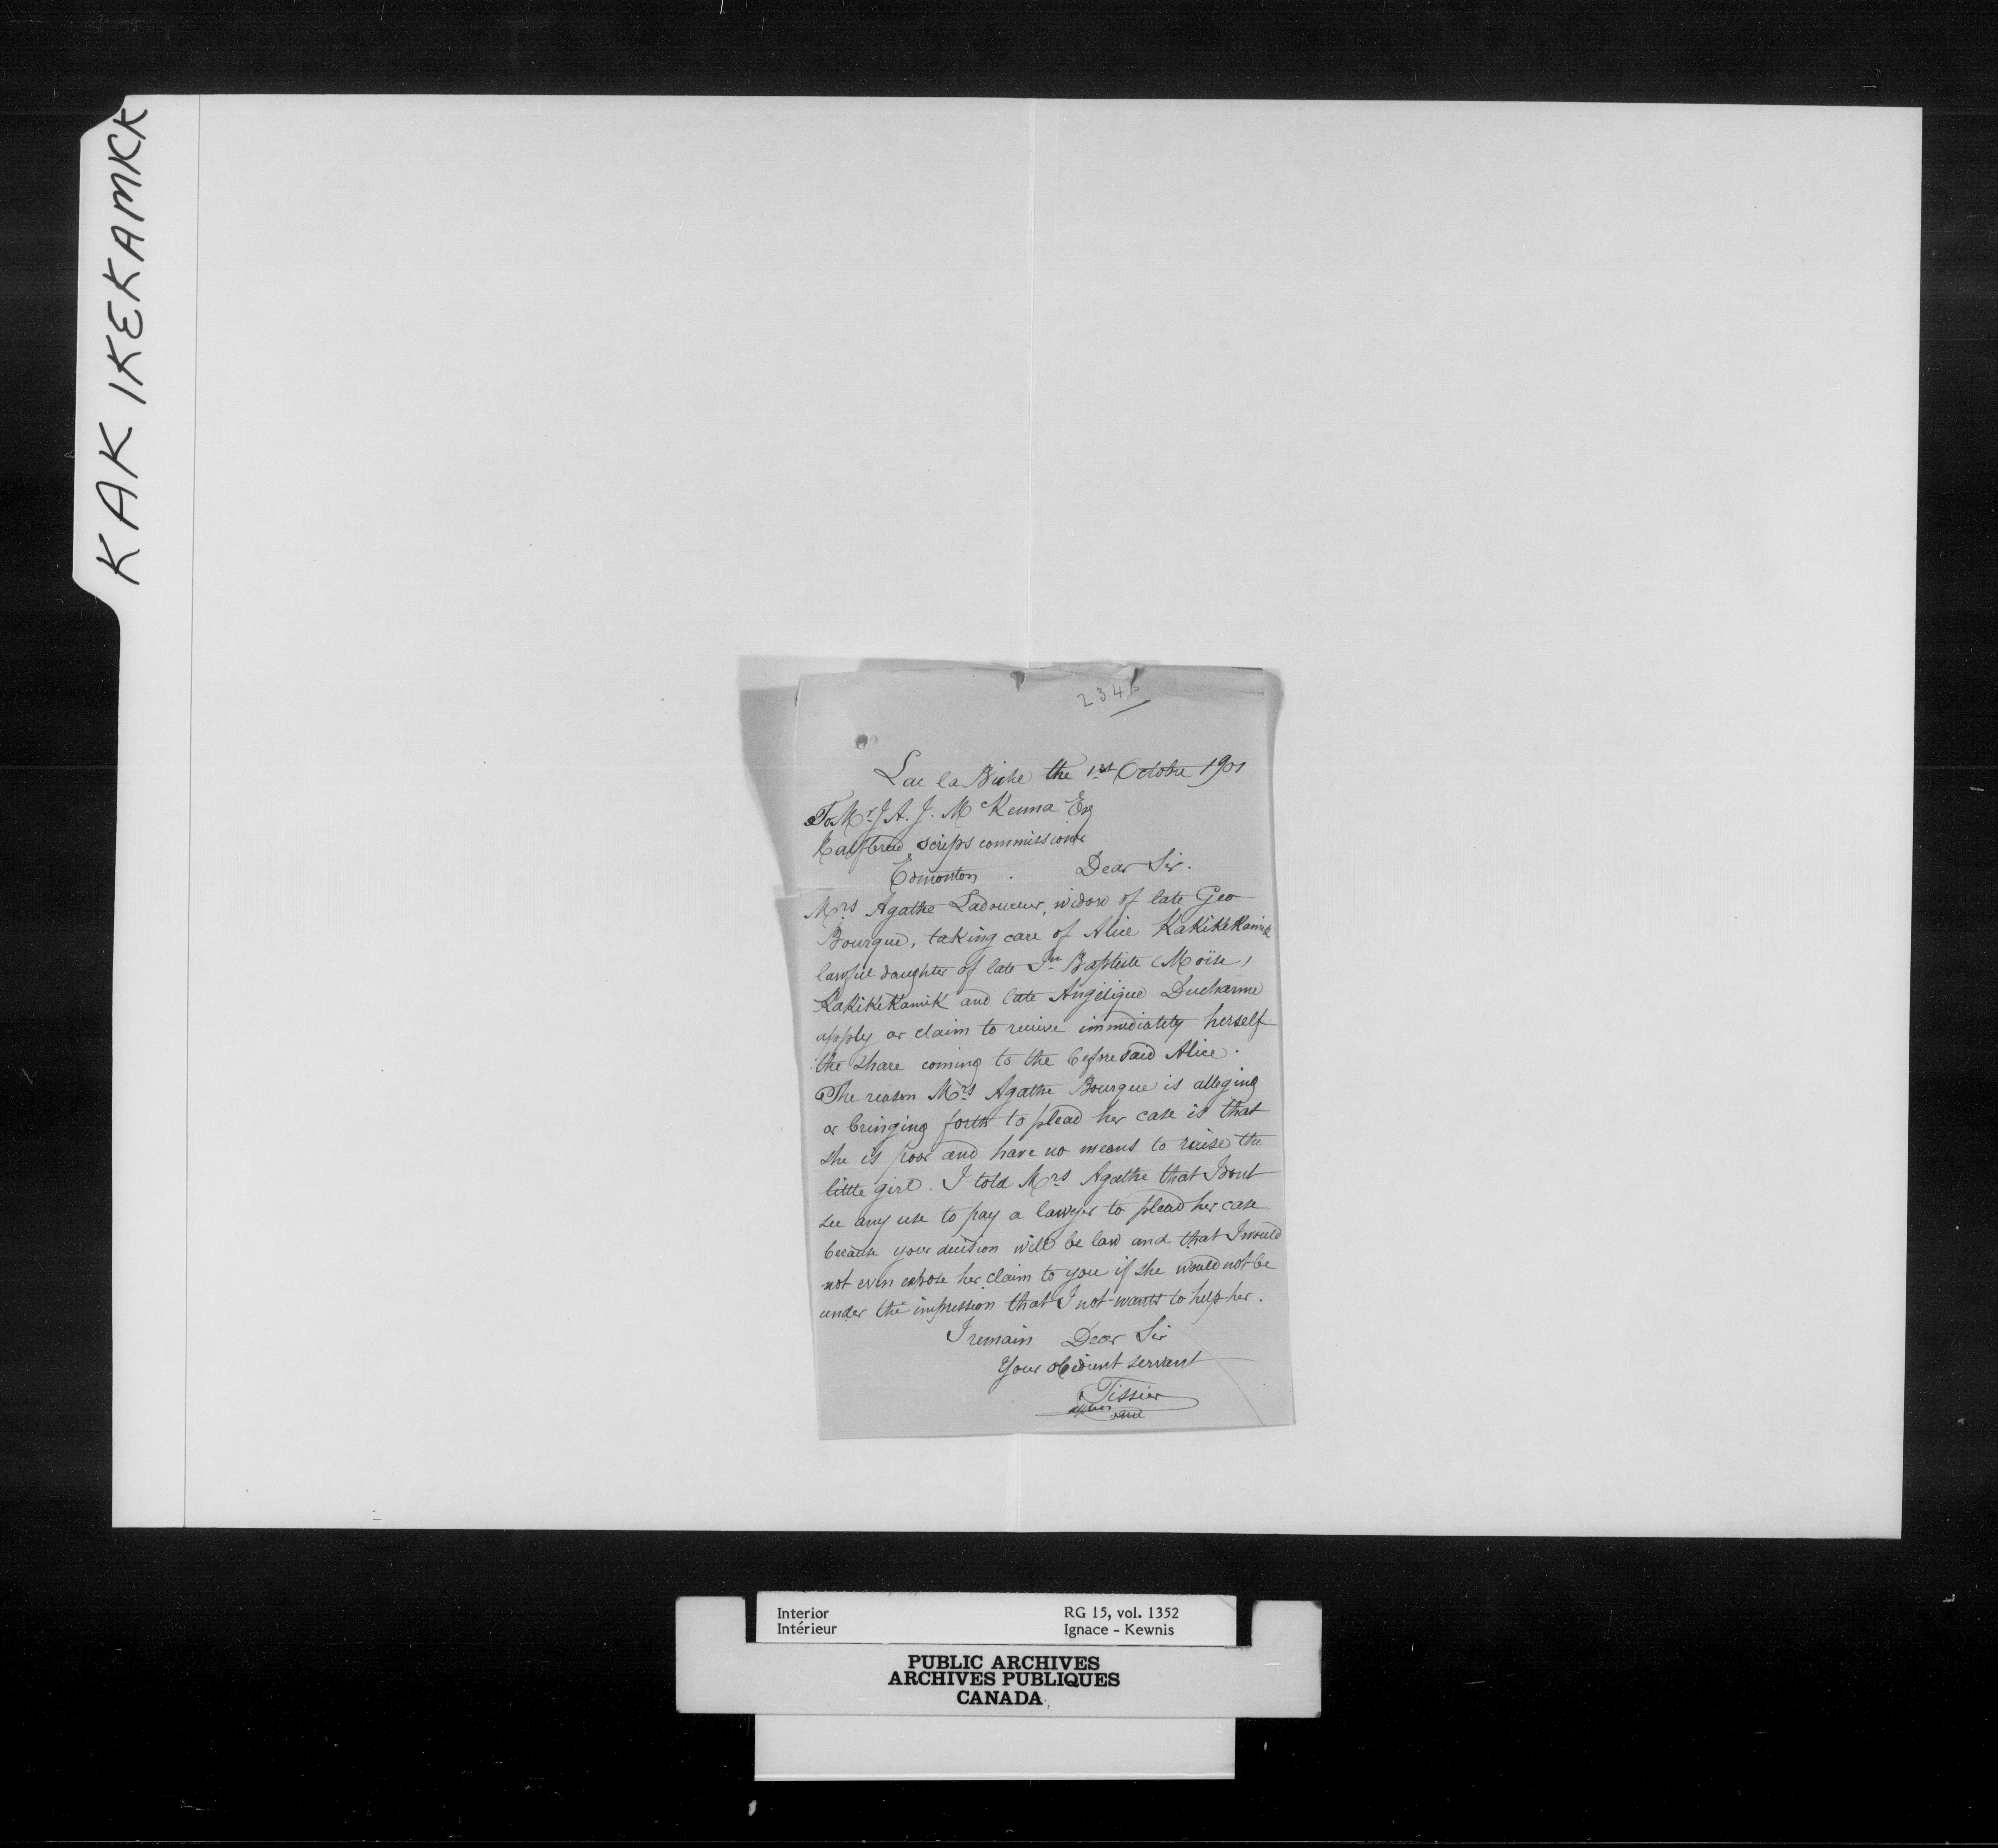 KAKIKEKAMICK
2346
Lac la Biche the 1st Octobre 1901
To Mr J A. J. McKenna Esq
Halfbreed Scrips commissioner
Edmonton . Dear Sir.
Mrs Agathe Ladouceur, widow of late Geo
Bourque, taking care of Alice KaKiKeKamik
lawful daughter of late Jn Baptiste (Moïse)
KaKiKeKamiK and late Angelique Ducharme
apply or claim to receive immediately herself
the share coming to the beforesaid Alice.
The reason Mrs Agathe Bourque is alleging
or bringing forth to plead her case is that
she is poor and have no means to raise the
little girl. I told Mrs Agathe that I dont
see any use to pay a lawyer to plead her case
because your decision will be law and that I would
not even expose her claim to you if she would not be
under the impression that I not wants to help her.
I remain Dear Sir
Your obedient servent
Tissier
Interior RG 15, vol. 1352
Intérieur Ignace - Kewnis
PUBLIC ARCHIVES
ARCHIVES PUBLIQUES
CANADA